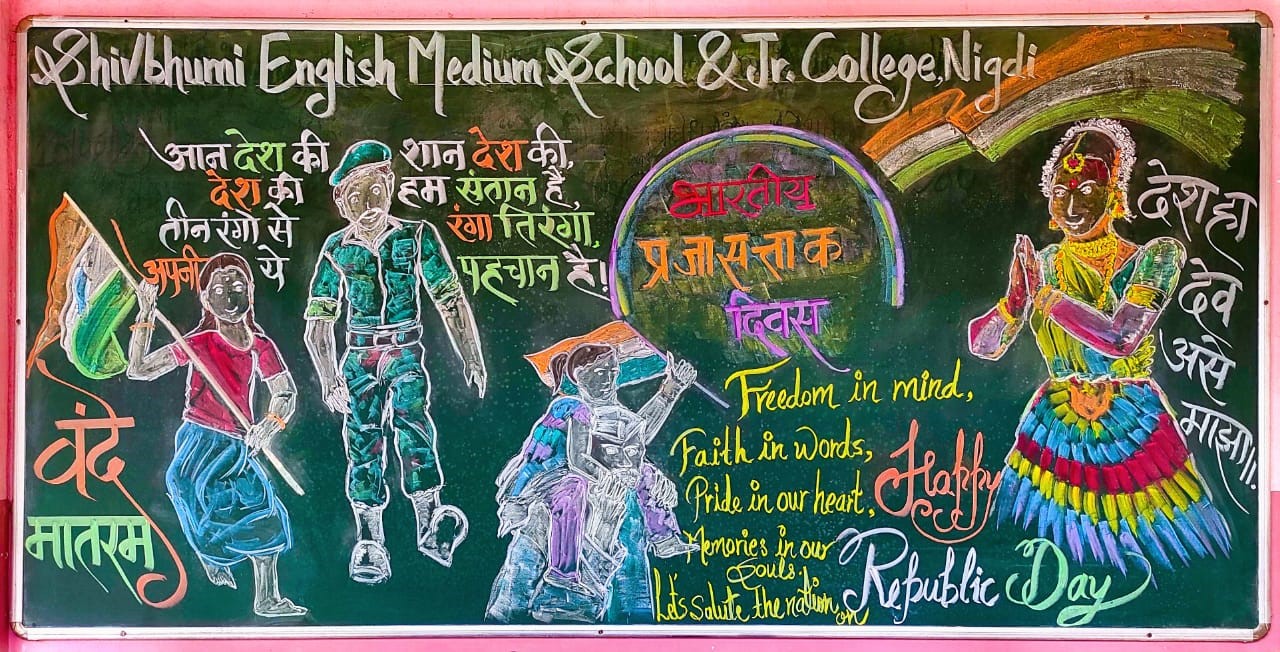 Shivbhumi English Medium School & Jr. College, Nigdi
आन देश की शान देश की,
देश की हम संतान है,
तीन रंगो से रंगा तिरंगा,
अपनी ये पहचान है।
भारतीय
प्रजासत्ताक
दिवस
देश हा
देव
असे
माझा।।
वंदे
मातरम
Freedom in mind,
Faith in words,
Pride in our heart,
Memories in our
Souls.
Let's salute the nation on
Happy
Republic Day